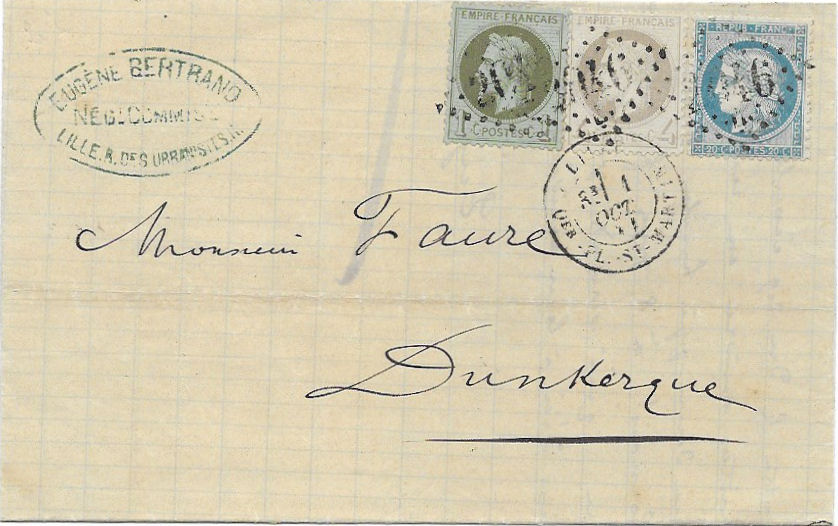 EUGÈNE BERTRAND
NÉGT COMMISS
LILLE. R. DES URBANISTES.
EMPIRE FRANÇAIS
1 C POSTES C 1
EMPIRE FRANÇAIS
4
REPUB. FRANC.
20 C. POSTES 20 C.
2046
46
LILLE
1
OCT.
71
PL. ST-MARTIN
Monsieur Faure
Dunkerque